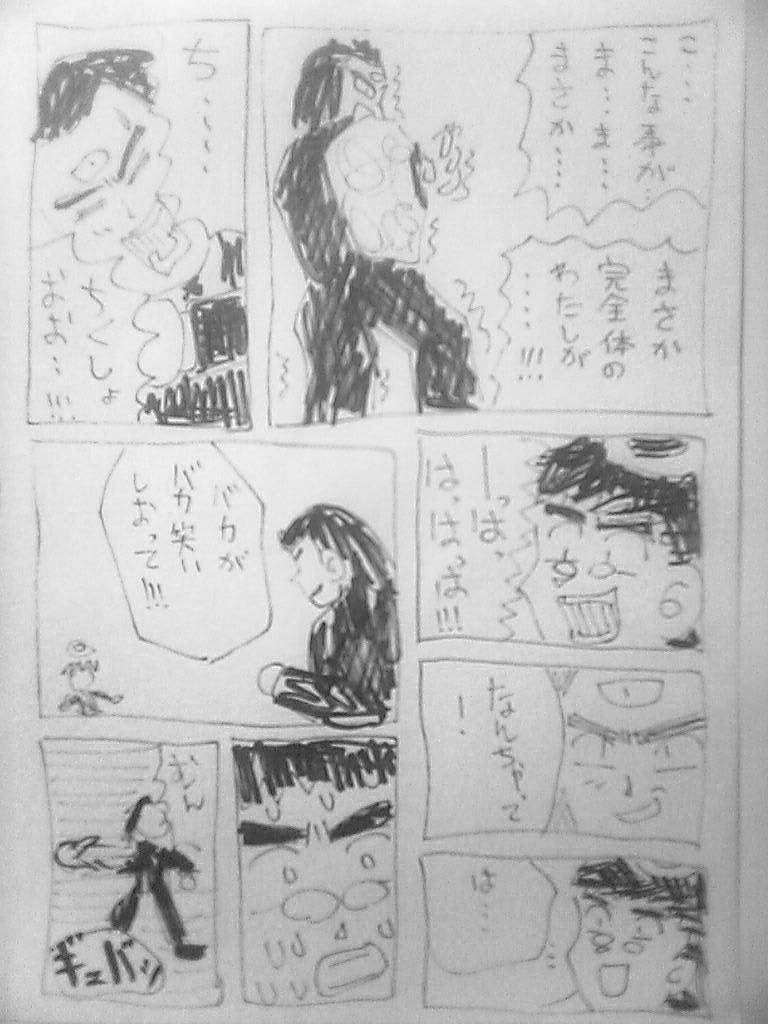 こ・・・・
こんな事が・・
ま・・・ま・・・
まさか・・・・
まさか
完全体の
わたしが
・・・・!!!
ち・・・・
ちくしょ
おお・・!!!
ーっはっ
はっはっは!!!
なんちゃって
ー・
は・・・
バカが
バカ笑い
しおって!!!
むん
ギュバッ